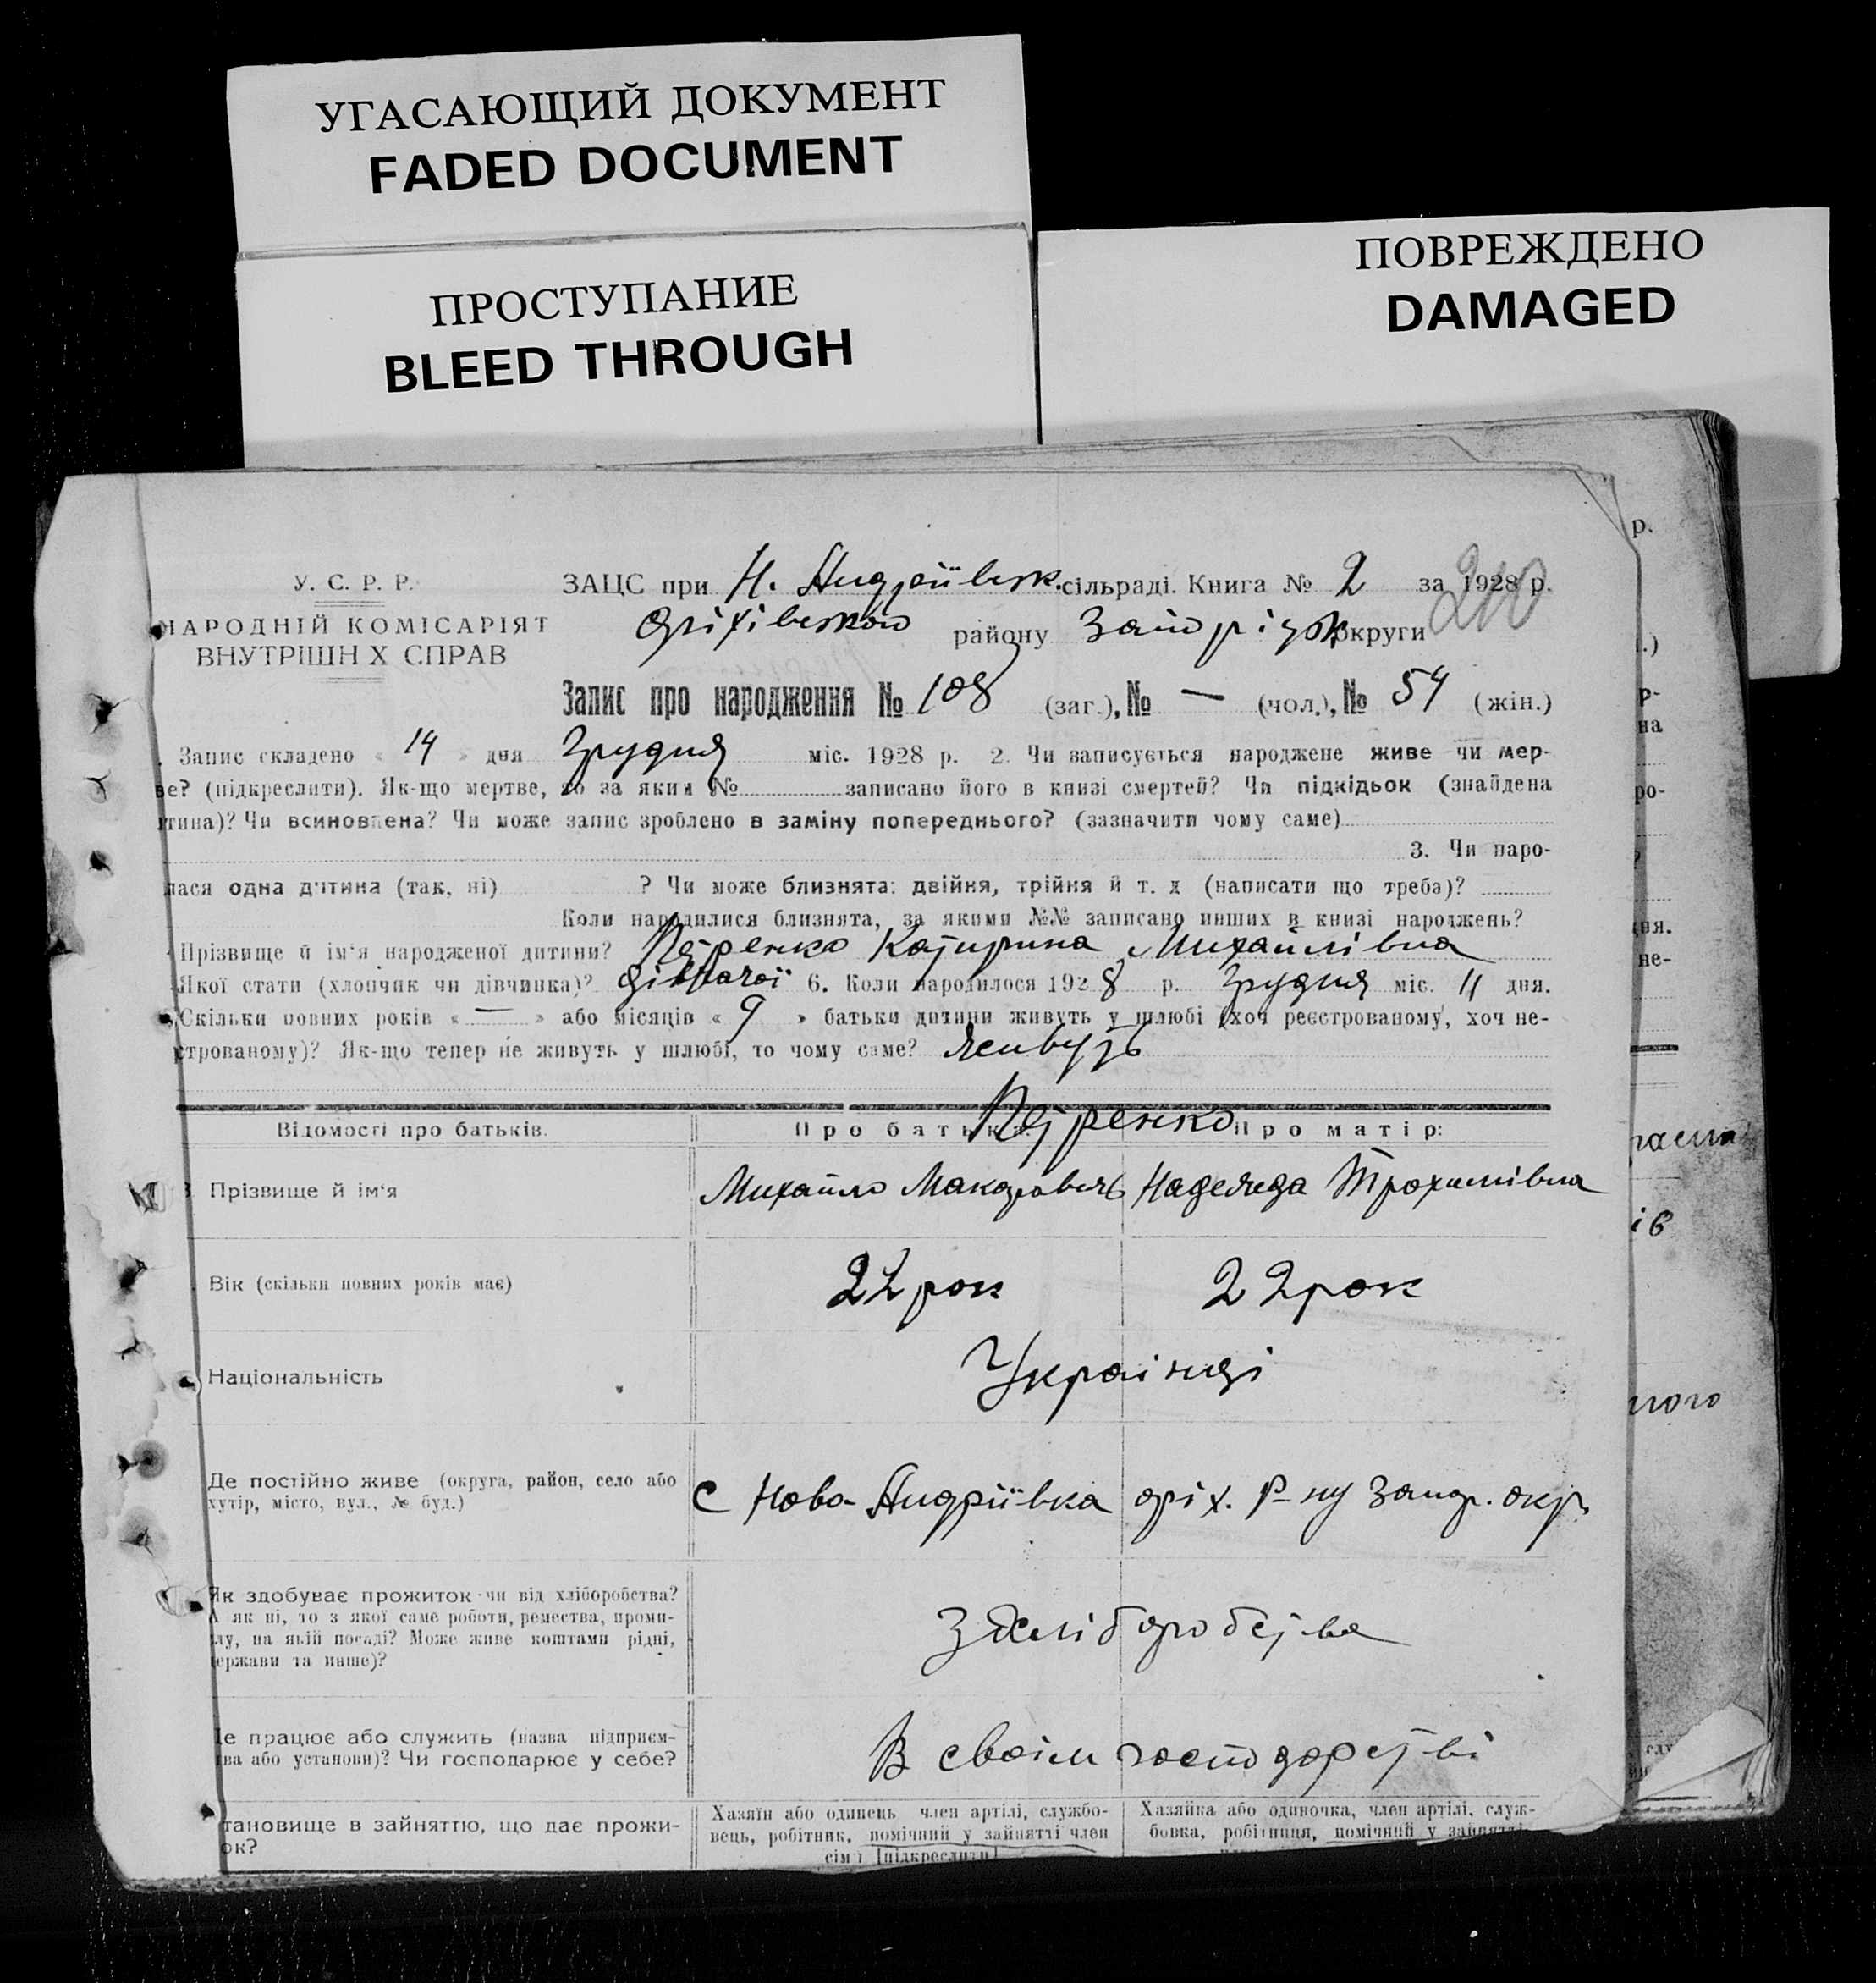 УГАСАЮЩИЙ ДОКУМЕНТ
FADED DOCUMENT
ПРОСТУПАНИЕ
BLEED THROUGH
ПОВРЕЖДЕНО
DAMAGED
У. С. Р. Р.
НАРОДНІЙ КОМІСАРІЯТ
ВНУТРІШН Х СПРАВ
ЗАЦС при Н. Андріївськ. сільраді. Книга № 2 за 1928 р.
210
Оріхівського району Запоріzьк округи
Запис про народження № 108 (заг.), № — (чол.), № 54 (жін.)
Запис складено « 14 » дня Грудня міс. 1928 р. 2. Чи записується народжене живе чи мер-
ве? (підкреслити). Як-що мертве, то за яким № записано його в книзі смертей? Чи підкідьок (знайдена
тина)? Чи всиновлена? Чи може запис зроблено в заміну попереднього? (зазначити чому саме)
3. Чи наро-
лася одна дитина (так, ні) ? Чи може близнята: двійня, трійня й т. д (написати що треба)?
Коли народилися близнята, за якими №№ записано инших в книзі народжень?
Прізвище й ім'я народженої дитини? Петренко Катирина Михайлівна
Якої стати (хлопчик чи дівчинка)? дівчачої 6. Коли народилося 1928 р. Грудня міс. 11 дня.
Скільки повних років « — » або місяців « 9 » батьки дитини живуть у шлюбі (хоч реєстрованому, хоч не-
строваному)? Як-що тепер не живуть у шлюбі, то чому саме? Живуть
Петренко
Відомості про батьків. Про батька: Про матір:
Прізвище й ім'я Михайло Макарович Надежда Трохимівна
Вік (скільки повних років має) 22 рок 22 рок
Національність Українці
Де постійно живе (округа, район, село або
хутір, місто, вул., № буд.) С Ново-Андріївка оріх. р-ну Запор. окр.
Як здобуває прожиток чи від хліборобства?
А як ні, то з якої саме роботи, ремества, проми-
лу, на якій посаді? Може живе коштами рідні,
держави та инше)?
З Хліборобства
Де працює або служить (назва підприєм-
ва або установи)? Чи господарює у себе? В своїм господарстві
тановище в зайняттю, що дає прожи-
ок?
Хазяїн або одинець член артілі, службо-
вець, робітник, помічний у зайнятті член
сім'ї [підкреслити]
Хазяйка або одиночка, член артілі, служ-
бовка, робітниця, помічний у зайнятті